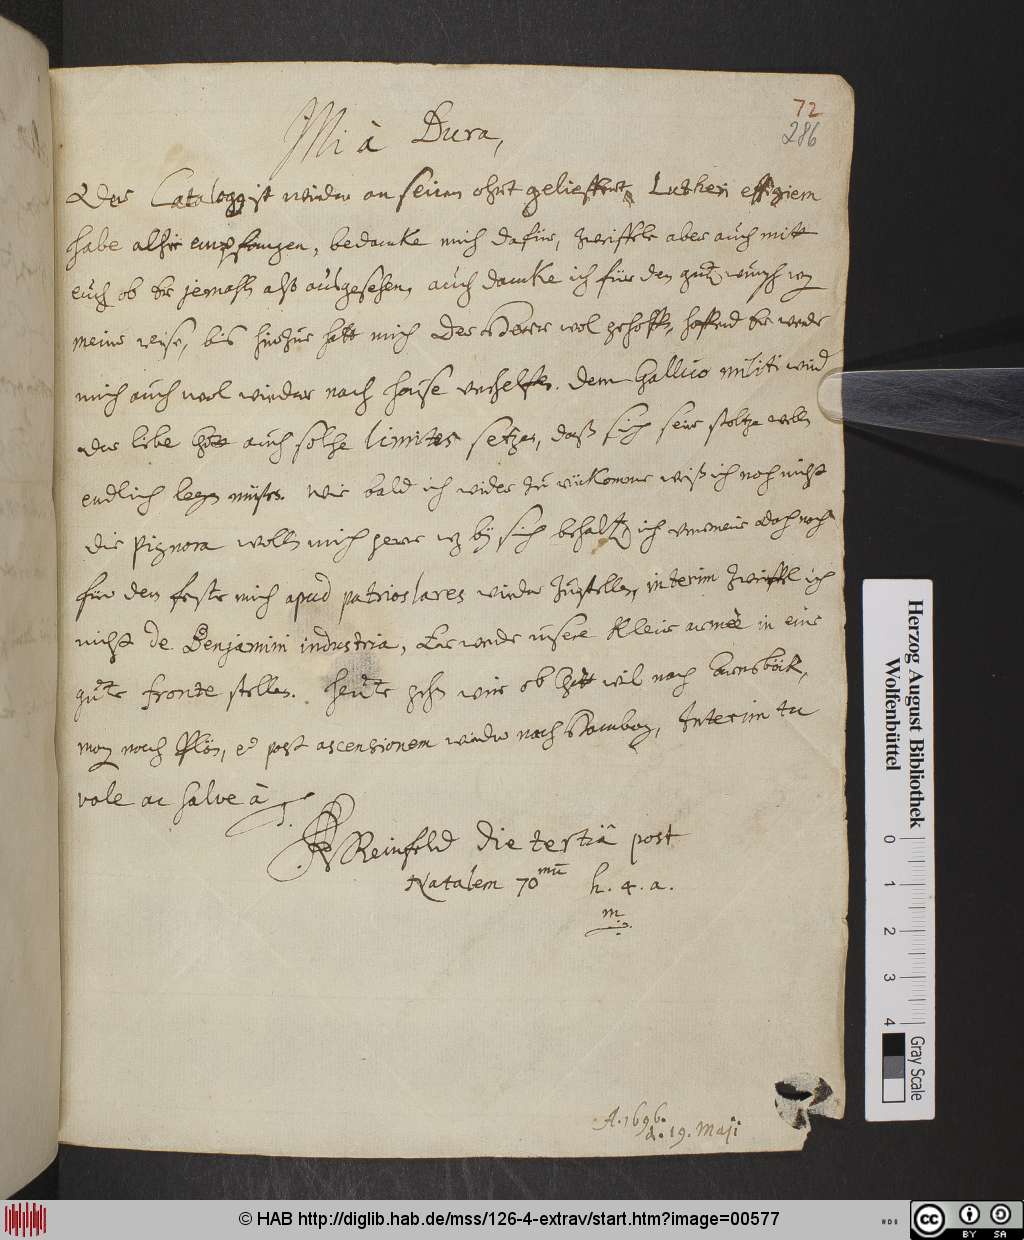 72
286
Mi à Dura,
Der Catalogg ist wieder an seinen ohrt gelieffert, Lutheri effigiem
habe alhie empfangen, bedancke mich dafür, zweiffele aber auch mitt
euch ob er jemahls also außgesehen, auch dancke ich für den gutten wunsch
meine reise, bis hiehin hatt mich Der Herr wol geholffen, hoffend er werde
mich auch wol wieder nach hause verhelffen. dem Gallico militi wird
der liebe Gott auch solche limites setzen, daß sich seine stoltze wellen
endlich legen müssen. Wie bald ich wider zurückomme weiß ich noch nicht
die pignora wollen mich gerne bey sich behalten, ich vermeine doch noch
für dem feste mich apud patrios lares wieder zustellen, interim zweiffel ich
nicht de Benjamini industria, Er werde unsere kleine armee in eine
gute fronte stellen. heute gehen wir ob Gott wil nach Arnsböck,
morgen nach Plön, et post ascensionem wieder nach Hamborg, Interim tu
vale ac salve à
T.
Reinfeld die tertiâ post
Natalem 70mū h. 4. a.
m.
A. 1696.
d. 19. Maji
Herzog August Bibliothek
Wolfenbüttel
0 1 2 3 4
Gray Scale
© HAB http://diglib.hab.de/mss/126-4-extrav/start.htm?image=00577
cc BY SA